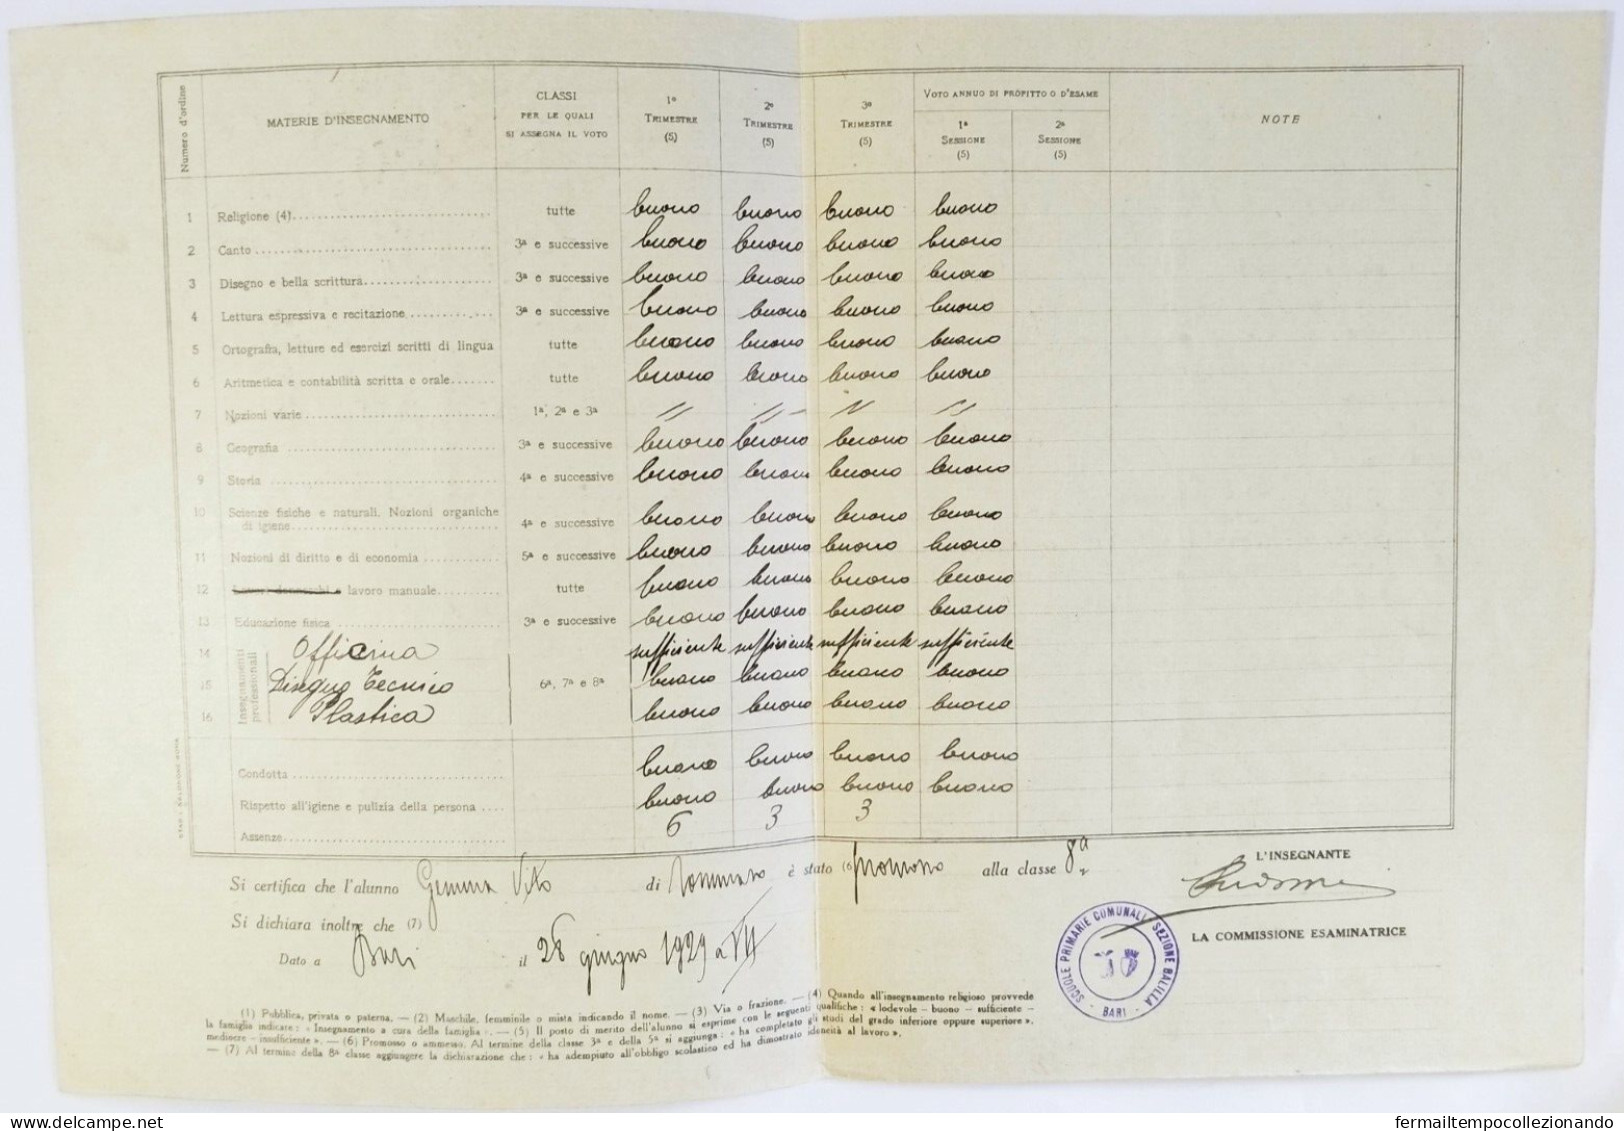 Numero d'ordine
MATERIE D'INSEGNAMENTO
CLASSI
PER LE QUALI
SI ASSEGNA IL VOTO
1º TRIMESTRE (5)
2º TRIMESTRE (5)
3º TRIMESTRE (5)
VOTO ANNUO DI PROFITTO O D'ESAME
1ª SESSIONE (5)
2ª SESSIONE (5)
NOTE
1 Religione (4) tutte buono buono buono buono
2 Canto 3ª e successive buono buono buono buono
3 Disegno e bella scrittura 3ª e successive buono buono buono buono
4 Lettura espressiva e recitazione 3ª e successive buono buono buono buono
5 Ortografia, letture ed esercizi scritti di lingua tutte buono buono buono buono
6 Aritmetica e contabilità scritta e orale tutte buono buono buono buono
7 Nozioni varie 1ª, 2ª e 3ª // // // //
8 Geografia 3ª e successive buono buono buono buono
9 Storia 4ª e successive buono buono buono buono
10 Scienze fisiche e naturali. Nozioni organiche
di igiene 4ª e successive buono buono buono buono
11 Nozioni di diritto e di economia 5ª e successive buono buono buono buono
12 lavoro manuale tutte buono buono buono buono
13 Educazione fisica 3ª e successive buono buono buono buono
Insegnamenti professionali
14 Officina sufficiente sufficiente sufficiente sufficiente
15 Disegno Tecnico 6ª, 7ª e 8ª buono buono buono buono
16 Plastica buono buono buono buono
Condotta buono buono buono buono
Rispetto all'igiene e pulizia della persona buono buono buono buono
Assenze 6 3 3
Si certifica che l'alunno Gemma Vito di Tommaso è stato (6) promosso alla classe 8ª
L'INSEGNANTE
Si dichiara inoltre che (7)
LA COMMISSIONE ESAMINATRICE
Dato a Bari il 28 giugno 1929 a VII
SCUOLE PRIMARIE COMUNALI SEZIONE BALILLA
- BARI -
(1) Pubblica, privata o paterna. — (2) Maschile, femminile o mista indicando il nome. — (3) Via o frazione. — (4) Quando all'insegnamento religioso provvede
la famiglia indicare: « Insegnamento a cura della famiglia ». — (5) Il posto di merito dell'alunno si esprime con le seguenti qualifiche: « lodevole - buono - sufficiente -
mediocre - insufficiente ». — (6) Promosso o ammesso. Al termine della classe 3ª e della 5ª si aggiunga: « ha completato gli studi del grado inferiore oppure superiore ».
— (7) Al termine della 8ª classe aggiungere la dichiarazione che: « ha adempiuto all'obbligo scolastico ed ha dimostrato idoneità al lavoro ».
fermailtempocollezionando
delcampe.net